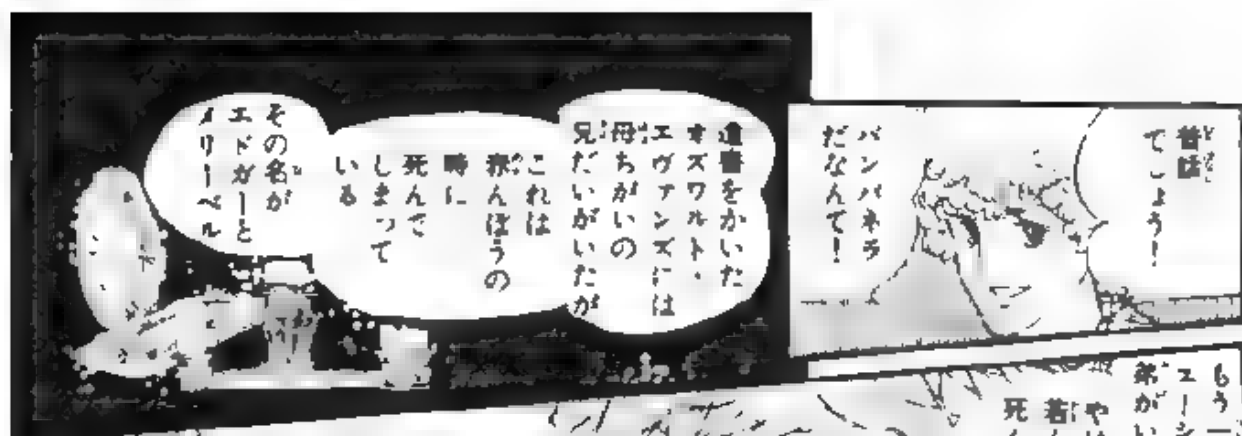 昔話
でしょう!
バンパネラ
だなんて!
遺書をかいた
オズワルト・
エヴァンズには
母ちがいの
兄だいがいたが
これは
赤んぼうの
時に
死んで
しまって
いる
その名が
エドガーと
メリーベル
もう一
弟がい